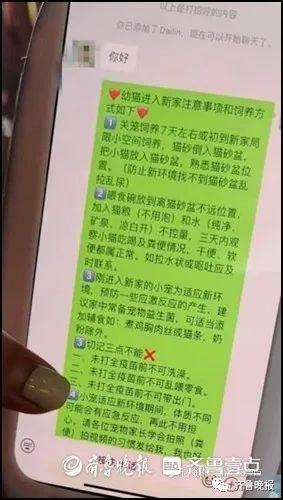 以上是打招呼的内容
你已添加了 Dailin，现在可以开始聊天了。
你好
❤️幼猫进入新家注意事项和饲养方
式如下❤️
1️⃣ 关笼饲养7天左右或初到新家局
限小空间饲养，猫砂倒入猫砂盆，
把小猫放入猫砂盆，熟悉猫砂盆位
置。（防止新环境找不到猫砂盆乱
拉乱尿）
2️⃣喂食碗放到离猫砂盆不远位置，
加入猫粮（不用泡）和水（纯净、
矿泉、凉白开）不控量，三天内观
察小猫吃喝及粪便情况，干便、软
便都属正常。如拉水状或呕吐应及
时联系。
3️⃣刚进入新家的小宠为适应新环
境，预防一些应激反应的产生，建
议家中常备宠物益生菌，可适当添
加辅食如：煮鸡胸肉丝或猫条，奶
粉除外。
3️⃣切记三点不能❌
一、未打全疫苗前不可洗澡。
二、未打全疫苗前不可乱喂零食。
三、未打全疫苗前不可带出门。
4️⃣小宠适应新环境期间，体质不同
可能会有应急反应，再此不用担
心。请各位宠物家长学会拍照（粪
便）拍视频的习惯发给我，我也好
齐鲁晚报
齐鲁壹点
齐鲁晚报